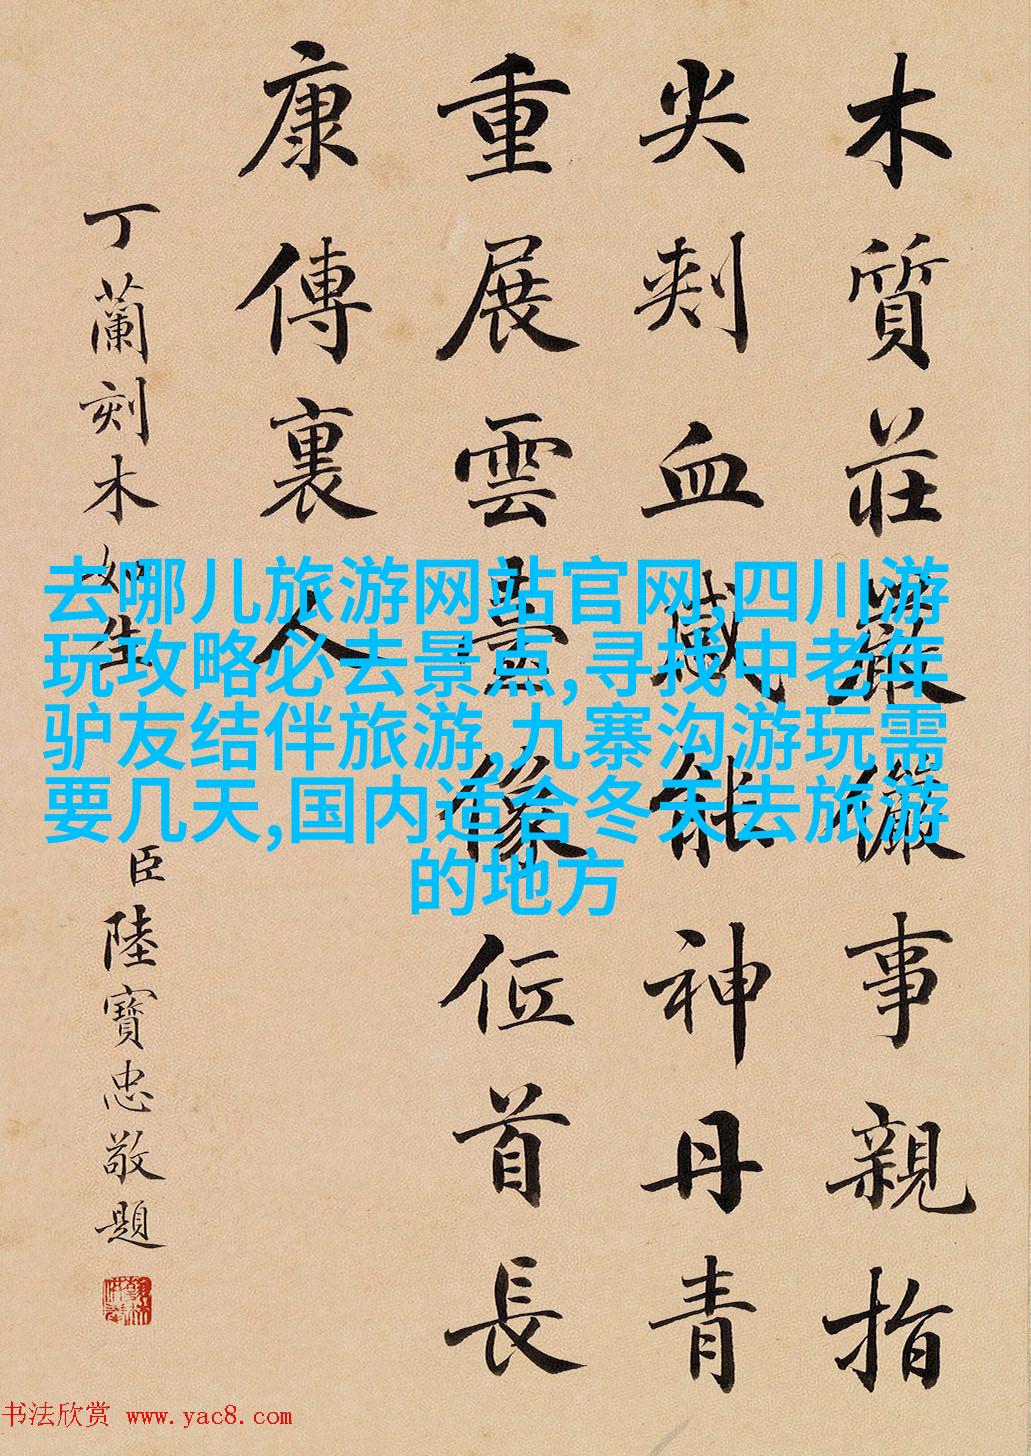 木質莊嚴儼事親指
尖刾血感能神丹青
重展雲臺像低首長
康傳裏人
丁蘭刻木如生
臣陸寶忠敬題
去哪儿旅游网站官网,四川游
玩攻略必去景点,寻找中老年
驴友结伴旅游,九寨沟游玩需
要几天,国内适合冬天去旅游
的地方
书法欣赏 www.yac8.com